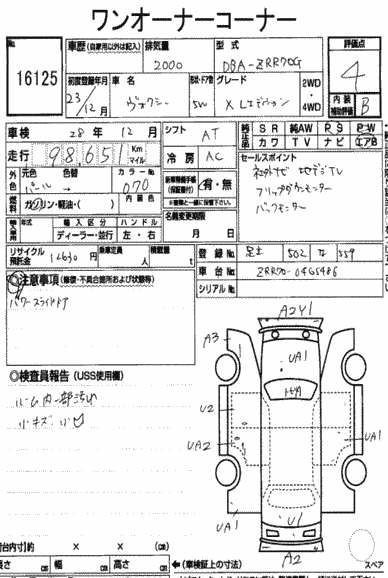 ワンオーナーコーナー
No.
16125
車歴 (自家用以外は記入)
排気量
2000
型式
DBA-ZRR70G
評価点
4
内装補助評価
B
初度登録年月
23/12月
車名
ヴォクシー
形状・ドア数
5W
グレード
X Lエディション
2WD
・
4WD
車検
28年 12月
走行
98,651
Km
マイル
シフト
AT
冷房
AC
純正品
SR 純AW PS PW
カワ TV ナビ エアB
セールスポイント
社外ナビ 地デジTV
フリップダウンモニター
バックモニター
外色
元色
パール
色替
→
カラーNo.
070
燃料
ガソリン・軽油・( )
内装色
新車時保証書
(保証書付)
有・無
名義変更期限
月 日
輸入車
年式
輸入区分
ディーラー・並行
ハンドル
左・右
リサイクル預託金
12630円
乗車定員
人
積載量
t
登録No.
足立 502 な 359
車台No.
ZRR70-0465486
シリアルNo.
◎注意事項 (修復・不具合箇所および状態等)
パワースライドドア
◎検査員報告 (USS使用欄)
小ム内一部汚れ
小キズ・小凹
A2Y1
A3
UA1
U2
UA2
UA1
UA1
U1
A2
荷台内寸)約 × × (cm)
長さ cm 幅 cm 高さ cm
←(車検証上の寸法)
スペア